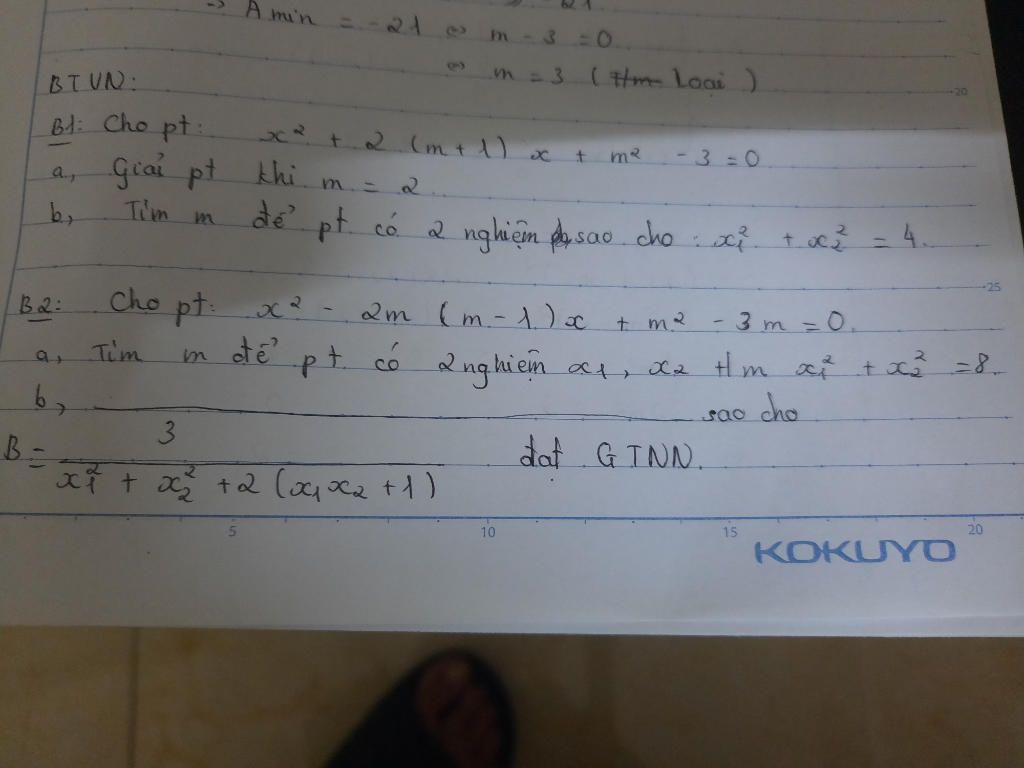 -> A min = -21 ⇔ m - 3 = 0
⇔ m = 3 (Loại)
BTVN:
B1: Cho pt: x² + 2 (m+1) x + m² - 3 = 0
a, Giải pt khi m = 2
b, Tìm m để pt có 2 nghiệm sao cho : x₁² + x₂² = 4.
B2: Cho pt: x² - 2m (m-1)x + m² - 3m = 0.
a, Tìm m để pt có 2 nghiệm x₁, x₂ t/m x₁² + x₂² = 8.
b, ________ sao cho
B = 3 / x₁² + x₂² + 2 (x₁x₂ + 1) đạt GTNN.
5 10 15 20
KOKUYO
20
25